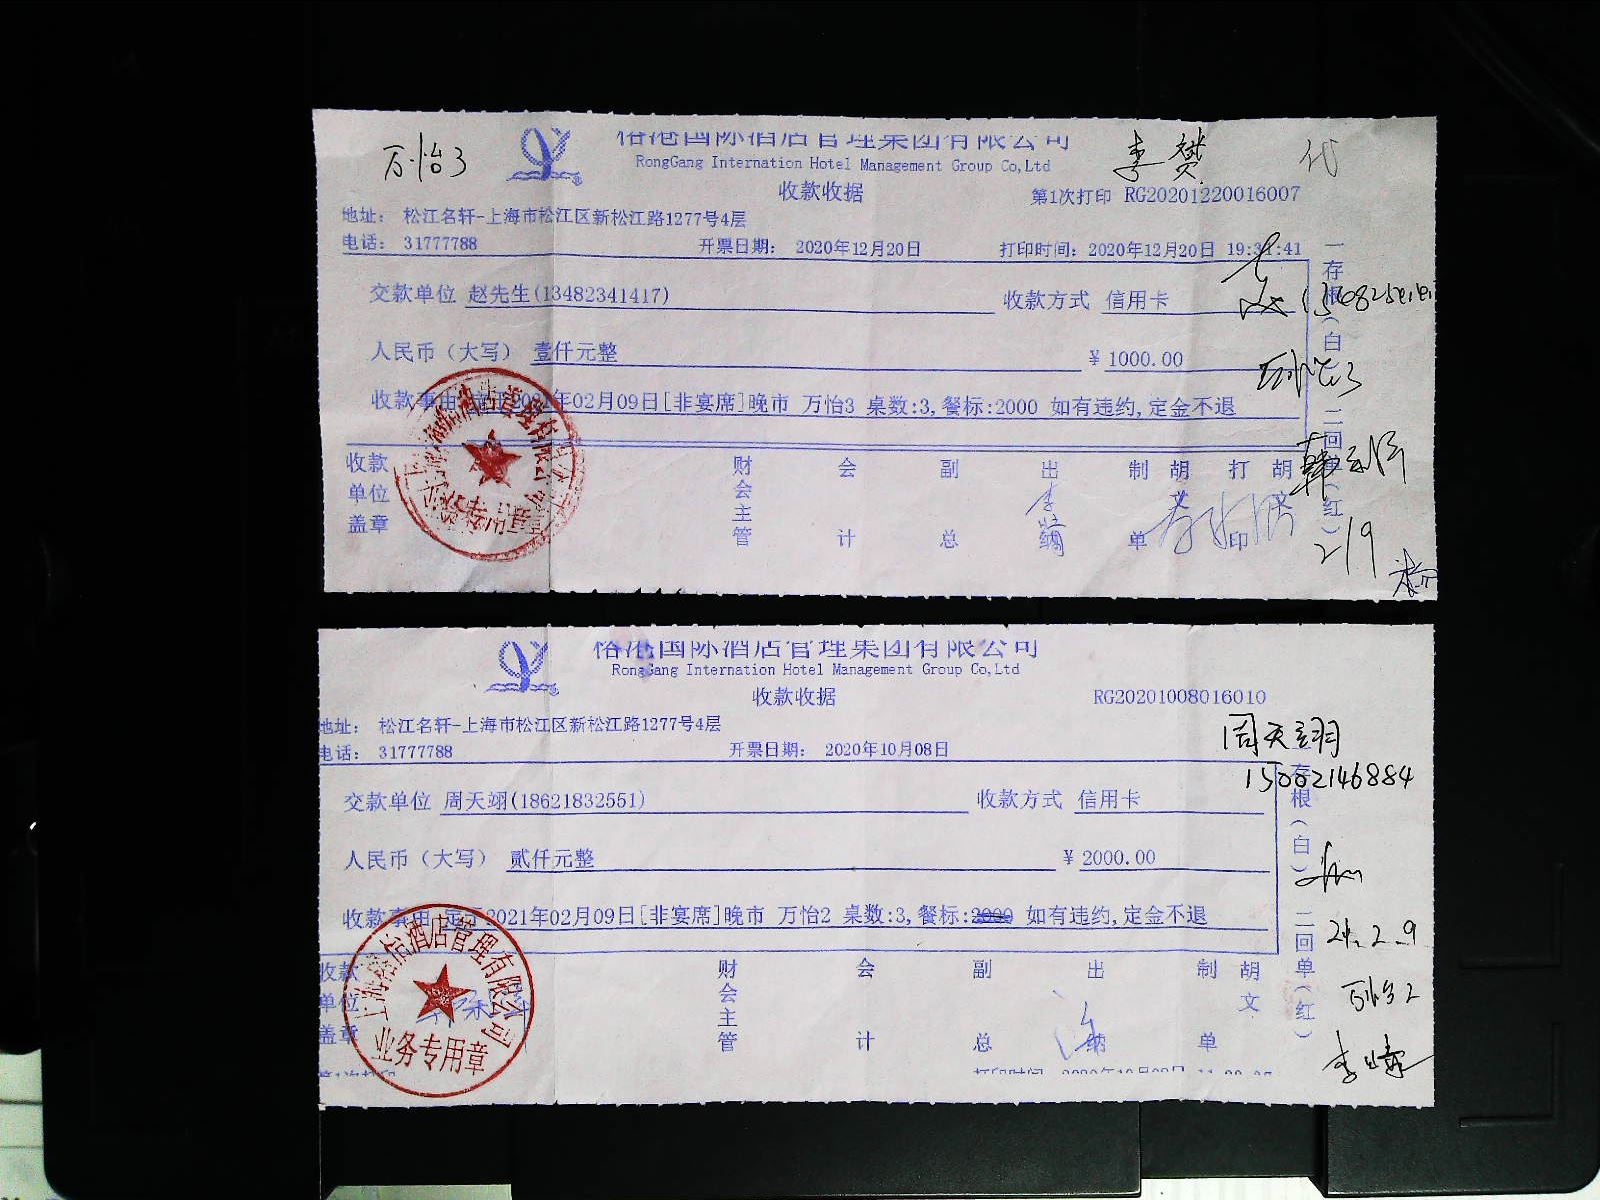 万怡3
国际酒店管理集团有限公司
李赟 代
RongGang Internation Hotel Management Group Co,Ltd
收款收据
第1次打印 RG20201220016007
地址: 松江名轩-上海市松江区新松江路1277号4层
电话: 31777788 开票日期: 2020年12月20日 打印时间: 2020年12月20日 19:34:41
交款单位 赵先生(13482341417) 收款方式 信用卡
人民币（大写） 壹仟元整 ¥ 1000.00
万怡3
收款事由 定于2021年02月09日[非宴席]晚市 万怡3 桌数:3,餐标:2000 如有违约,定金不退
收款单位盖章 财会主管 会计 副总 出纳 制单 胡文 打印 胡文
一存根(白) 二回单(红)
2/9
国际酒店管理集团有限公司
RongGang Internation Hotel Management Group Co,Ltd
收款收据
RG20201008016010
地址: 松江名轩-上海市松江区新松江路1277号4层
电话: 31777788 开票日期: 2020年10月08日
周天翊
15002146884
交款单位 周天翊(18621832551) 收款方式 信用卡
人民币（大写） 贰仟元整 ¥ 2000.00
收款事由 定于2021年02月09日[非宴席]晚市 万怡2 桌数:3,餐标:2000 如有违约,定金不退
收款单位盖章 财会主管 会计 副总 出纳 制单 胡文
存根(白) 二回单(红)
21.2.9
万怡2
业务专用章